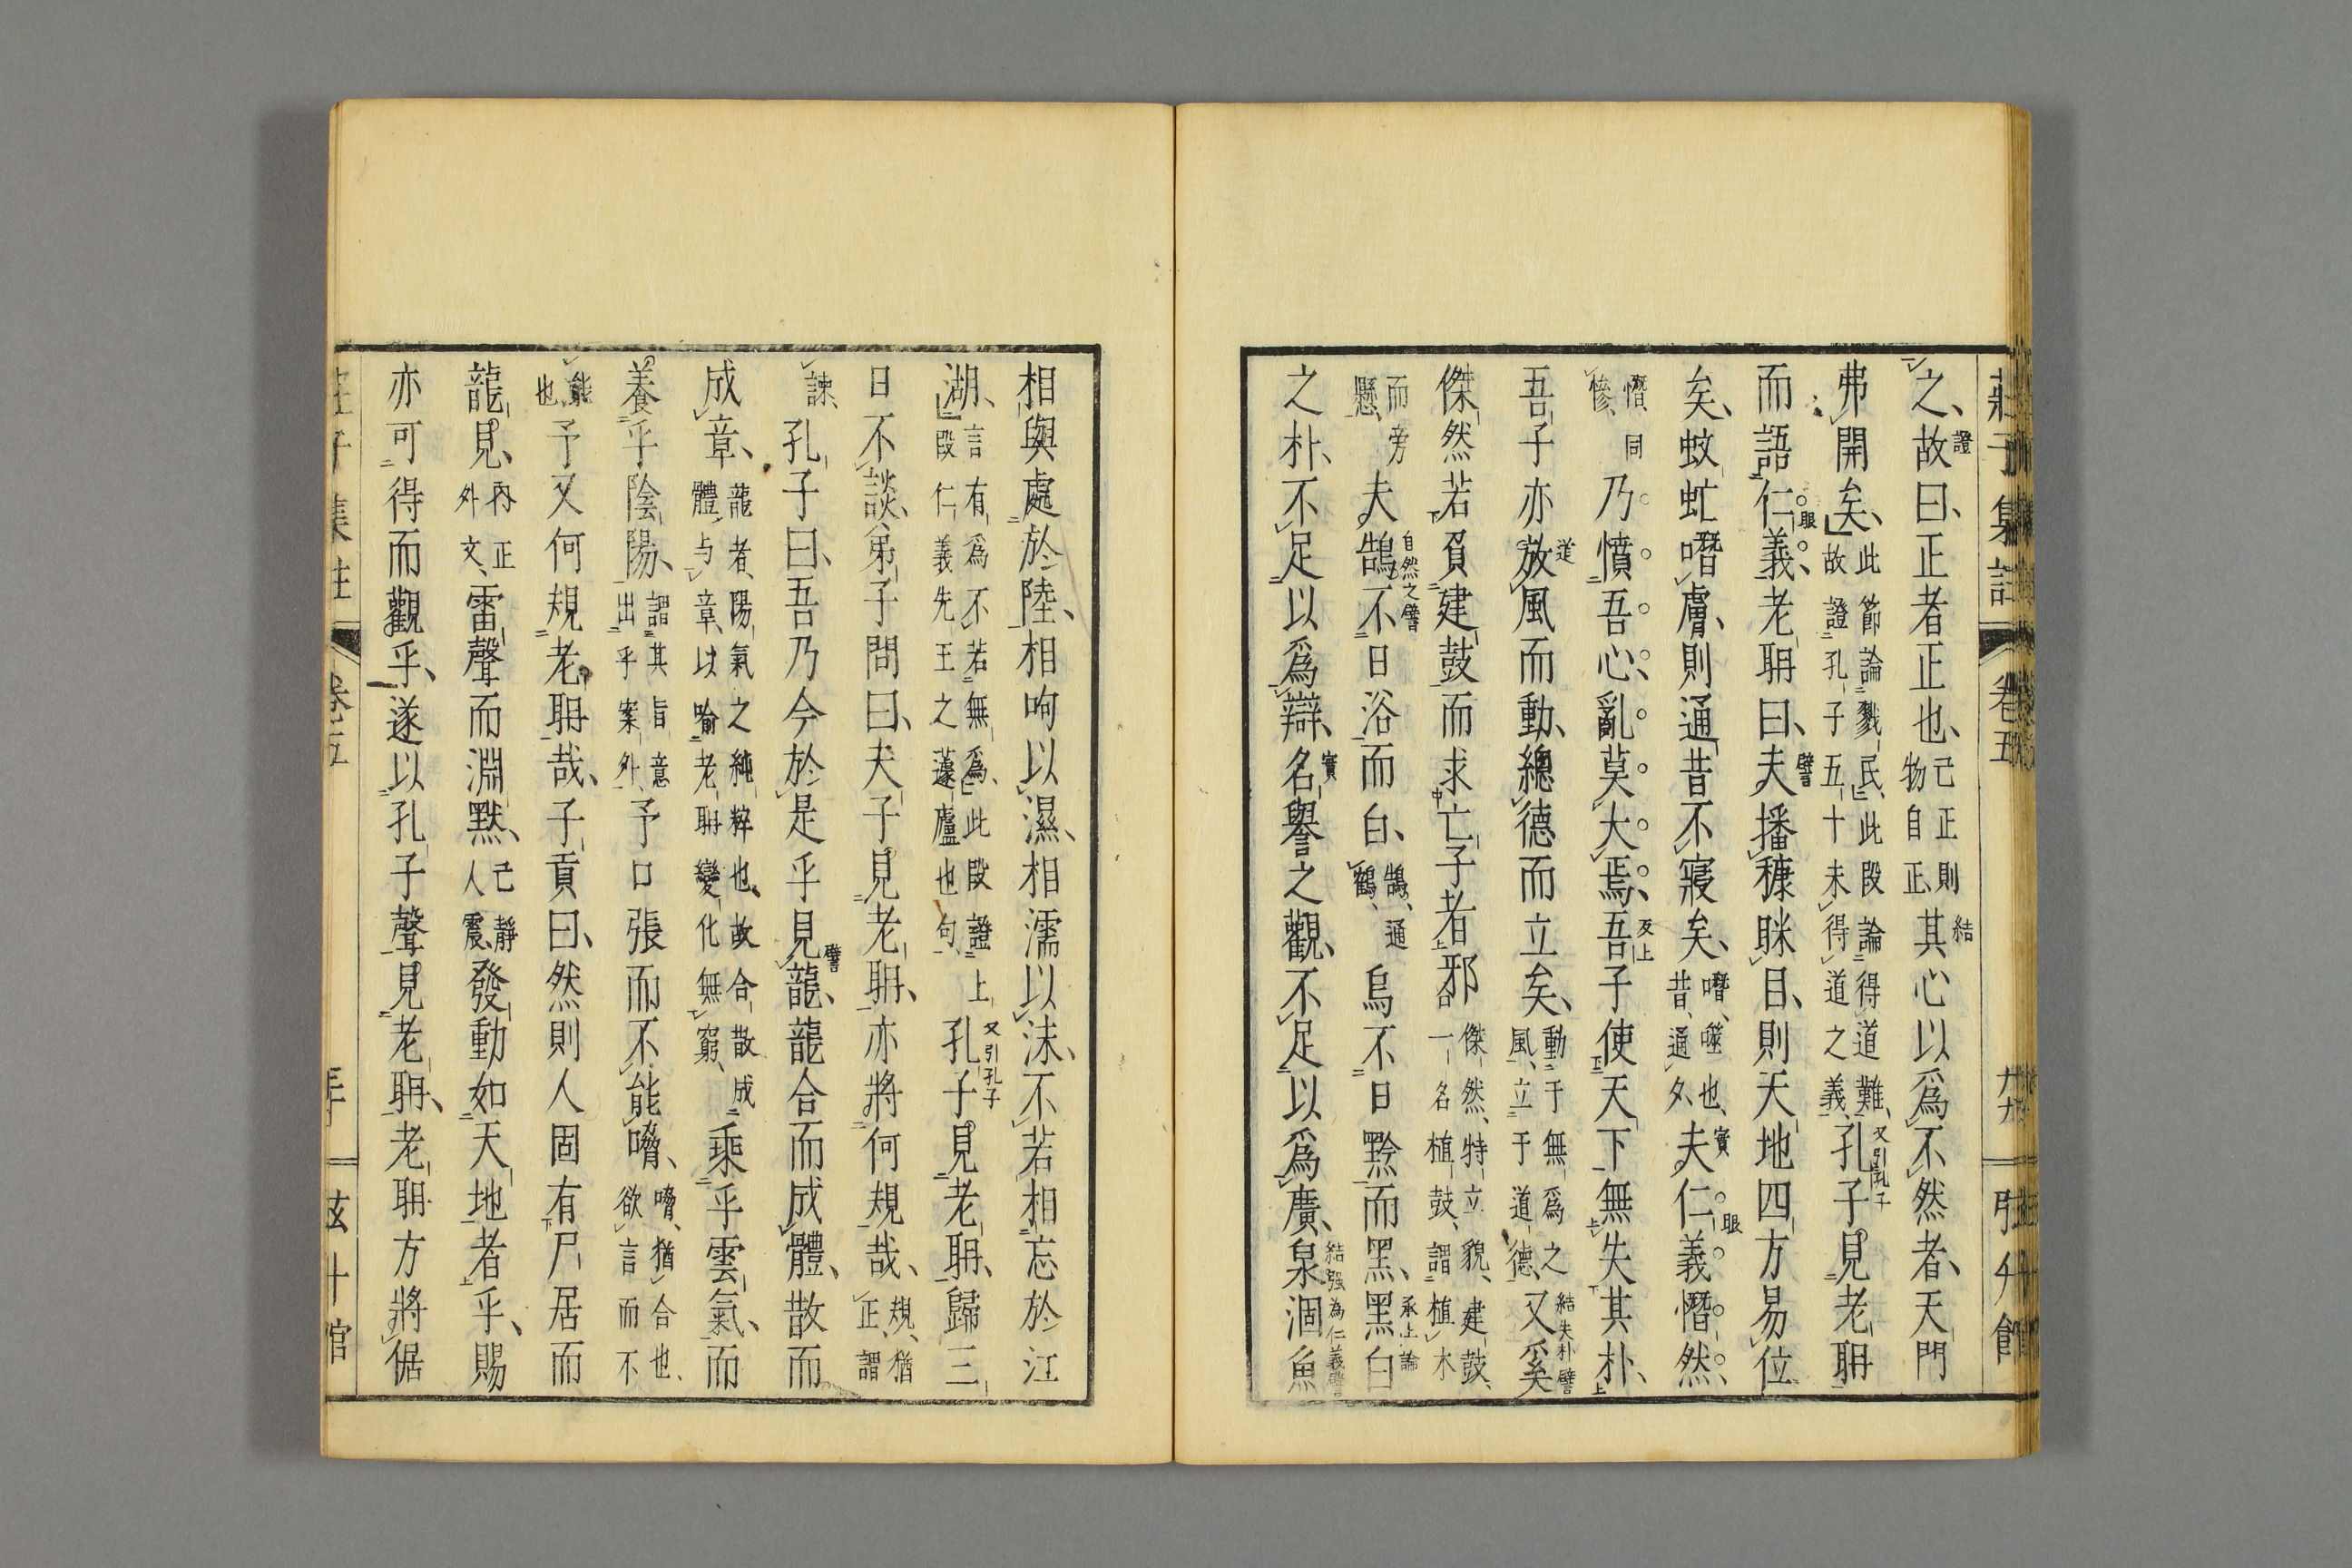 莊子集註 卷五
之故曰正者正也己正則物自正其心以爲不然者天門
弗開矣此節論戮民此段論得道難故證孔子五十未得道之義孔子見老耼
而語仁義老耼曰夫播穅眯目則天地四方易位
矣蚊虻噆膚則通昔不寢矣噆噬也昔通夕夫仁義憯然
憯同慘乃憤吾心亂莫大焉吾子使天下無失其朴
吾子亦放風而動總德而立矣動于無爲之風立于道德又奚
傑然若負建鼓而求亡子者邪傑然特立貌建鼓一名植鼓謂植木
而旁懸夫鵠不日浴而白鵠通鶴烏不日黔而黑黑白
之朴不足以爲辯名譽之觀不足以爲廣泉涸魚
相與處於陸相呴以濕相濡以沫不若相忘於江
湖言有爲不若無爲此段證上段仁義先王之蘧廬也句孔子見老耼歸三
日不談弟子問曰夫子見老耼亦將何規哉規猶正謂
諫孔子曰吾乃今於是乎見龍龍合而成體散而
成章龍者陽氣之純粹也故合散成體与章以喻老耼變化無窮乘乎雲氣而
養乎陰陽謂其旨意出乎案外予口張而不能嗋嗋猶合也欲言而不
能也予又何規老耼哉子貢曰然則人固有尸居而
龍見內正外文雷聲而淵默己靜人震發動如天地者乎賜
亦可得而觀乎遂以孔子聲見老耼老耼方將倨
證
結
又引孔子
眼
譬
實
眼
反上
道
結失朴譬
自然之譬
承上論
實
結强為仁義譬
又引孔子
譬